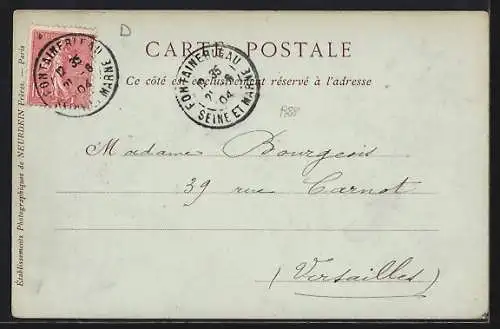 D
CARTE POSTALE
Ce côté est exclusivement réservé à l'adresse
FONTAINEBLEAU
12 35
04
SEINE ET MARNE
FONTAINEBLEAU
12 35
04
SEINE ET MARNE
Madame Bourgeois
39 rue Carnot
(Versailles)
Établissements Photographiques de NEURDEIN Frères. — Paris